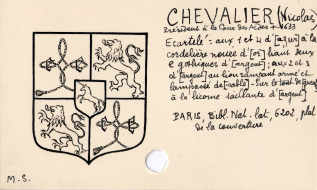 CHEVALIER (Nicolas)
Président à la Cour des Aides + 1633
Ecartelé = aux 1 et 4 d'[azur] à la
cordelière nouée d'[or] liant deux
e gothiques d'[argent] ; aux 2 et 3
d'[argent] au lion rampant armé et
lampassé de [sable] - Sur le tout de [gueules]
à la licorne saillante d'[argent]
PARIS, Bibl. Nat. lat. 6202, plat
de la couverture
M.S.